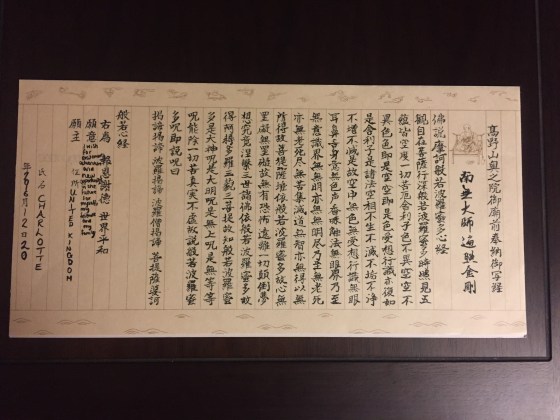 高野山奥之院御廟前奉納御写経
南無大師遍照金剛
佛説摩訶般若波羅蜜多心経
観自在菩薩行深般若波羅蜜多時照見五
蘊皆空度一切苦厄舎利子色不異空空不
異色色即是空空即是色受想行識亦復如
是舎利子是諸法空相不生不滅不垢不浄
不増不減是故空中無色無受想行識無眼
耳鼻舌身意無色声香味触法無眼界乃至
無意識界無無明亦無無明尽乃至無老死
亦無老死尽無苦集滅道無智亦無得以無
所得故菩提薩埵依般若波羅蜜多故心無
罣礙無罣礙故無有恐怖遠離一切顛倒夢
想究竟涅槃三世諸佛依般若波羅蜜多故
得阿耨多羅三藐三菩提故知般若波羅蜜
多是大神呪是大明呪是無上呪是無等等
呪能除一切苦真実不虚故説般若波羅蜜
多呪即説呪曰
羯諦羯諦 波羅羯諦 波羅僧羯諦 菩提薩婆訶
般若心経
右為 報恩謝徳 世界平和
願意
願主 住所 UNITED KINGDOM
氏名 CHARLOTTE
月12日20